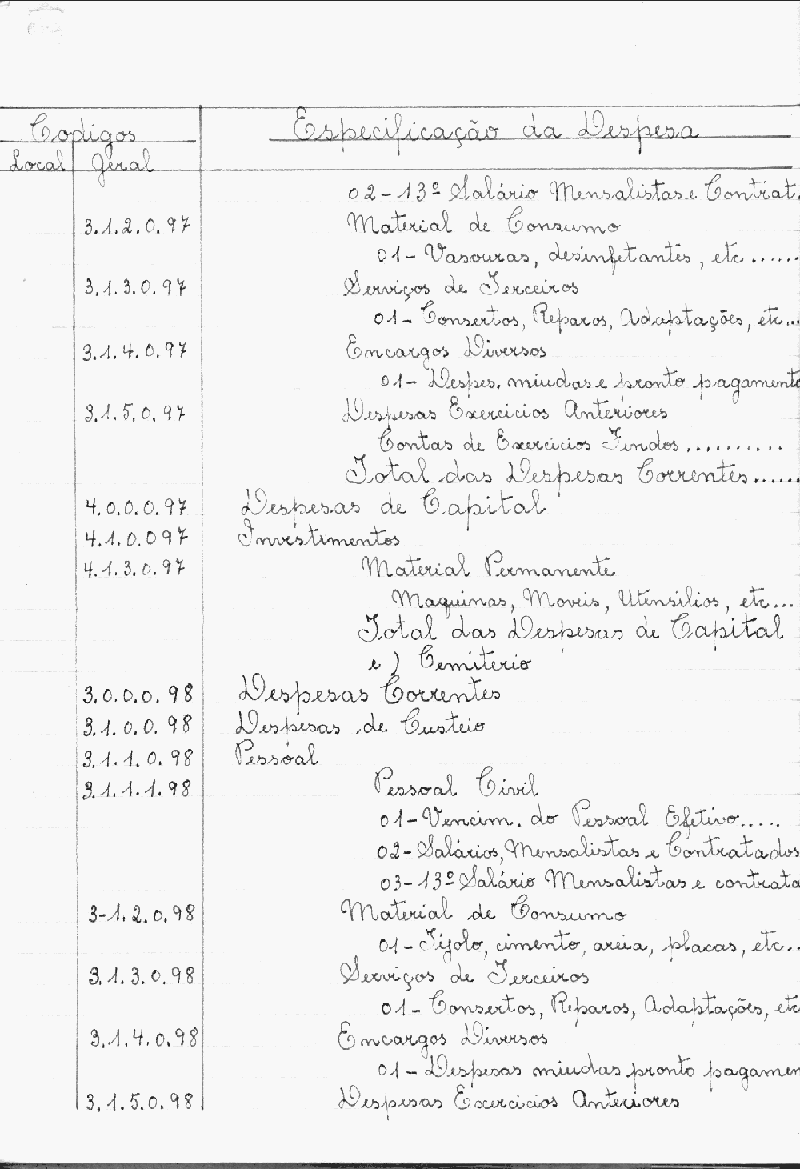 Codigos Especificação da Despesa
Local Geral
02-13º Salário Mensalistas e Contrat.
3.1.2.0.97 Material de Consumo
01- Vasouras, desinfetantes, etc ......
3.1.3.0.97 Serviços de Terceiros
01- Consertos, Reparos, Adaptações, etc...
3.1.4.0.97 Encargos Diversos
01- Despes. miudas e pronto pagamento
3.1.5.0.97 Despesas Exercicios Anteriores
Contas de Exercicios Findos ..........
Total das Despesas Correntes......
4.0.0.0.97 Despesas de Capital
4.1.0.097 Investimentos
4.1.3.0.97 Material Permanente
Maquinas, Moveis, Utensilios, etc...
Total das Despesas de Capital
e) Cemiterio
3.0.0.0.98 Despesas Correntes
3.1.0.0.98 Despesas de Custeio
3.1.1.0.98 Pessoal
3.1.1.1.98 Pessoal Civil
01-Vencim. do Pessoal Efetivo.....
02-Salários, Mensalistas e Contratados
03-13º Salário Mensalistas e contrata
3-1.2.0.98 Material de Consumo
01-Tijolo, cimento, areia, placas, etc..
3.1.3.0.98 Serviços de Terceiros
01-Consertos, Reparos, Adaptações, etc
3.1.4.0.98 Encargos Diversos
01-Despesas miudas pronto pagamen
3.1.5.0.98 Despesas Exercicios Anteriores